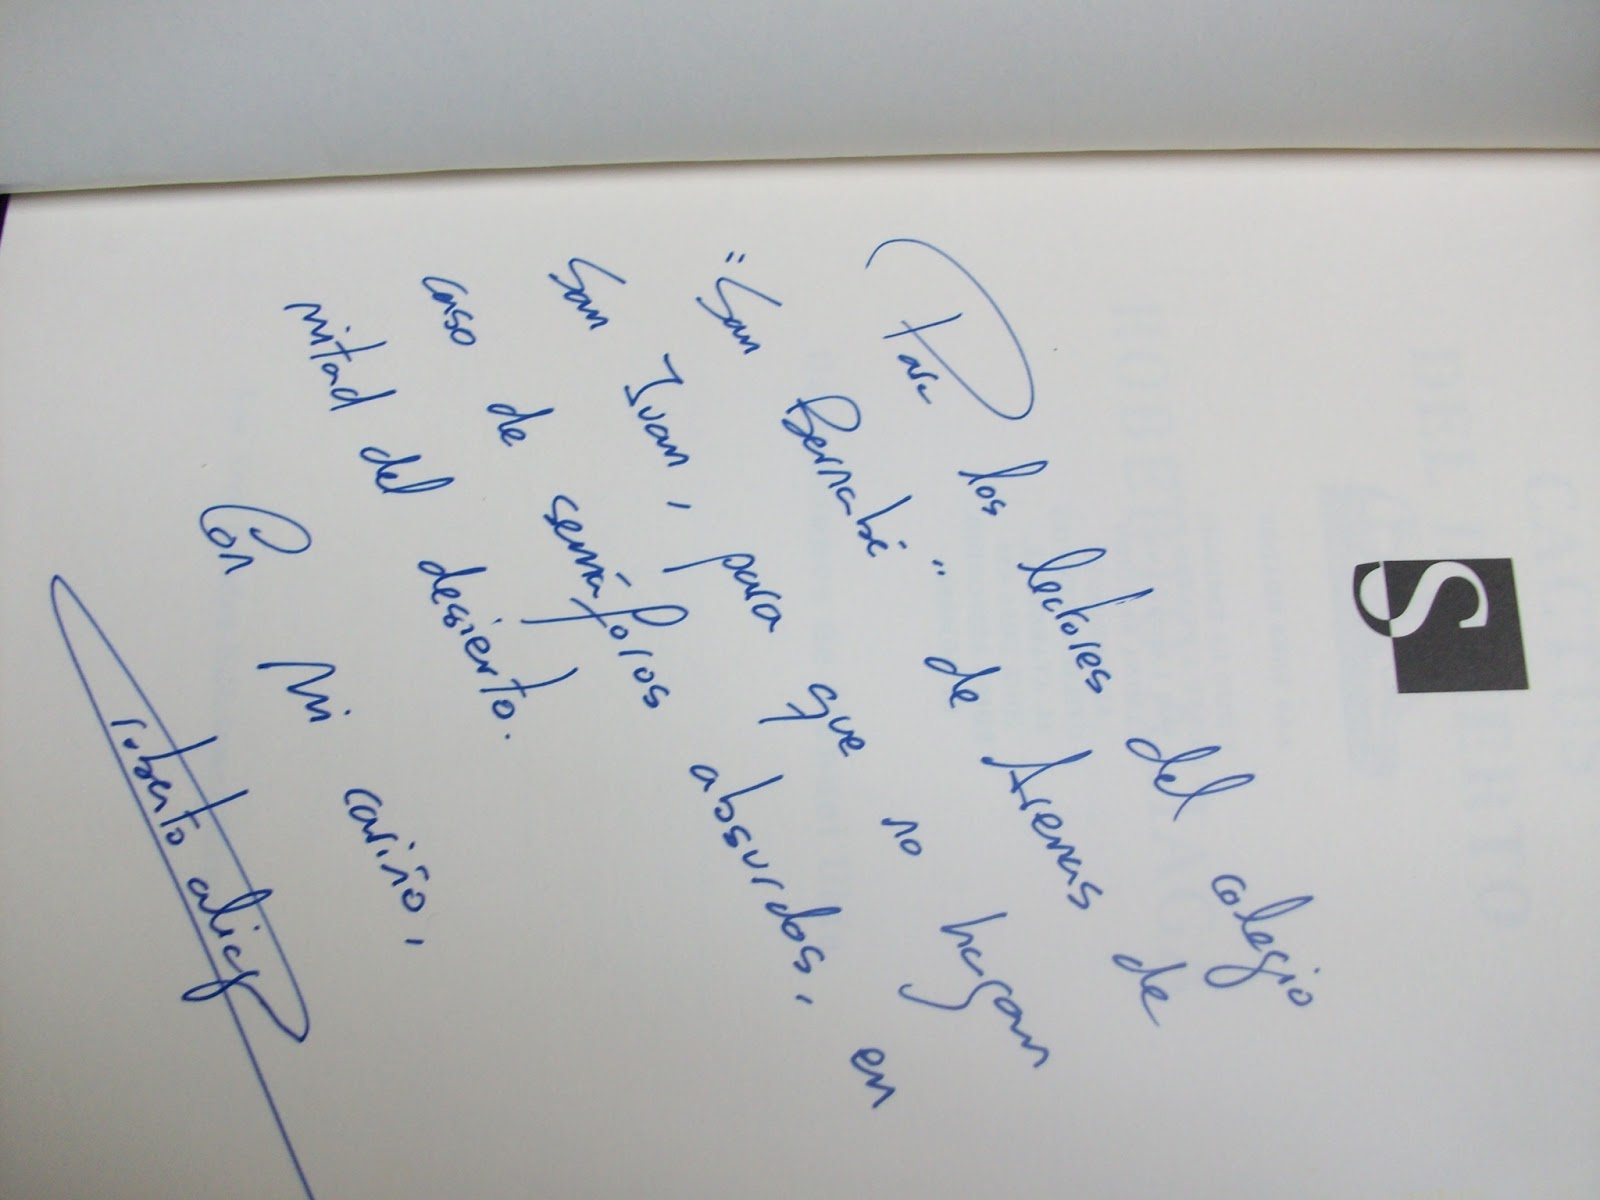 Para los lectores del colegio
"San Bernabé" de Arenas de
San Juan, para que no hagan
caso de semáforos absurdos, en
mitad del desierto.
Con mi cariño,
roberto aliaga